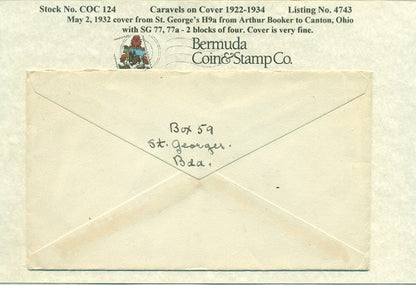 Stock No. COC 124 Caravels on Cover 1922-1934 Listing No. 4743
May 2, 1932 cover from St. George's H9a from Arthur Booker to Canton, Ohio
with SG 77, 77a - 2 blocks of four. Cover is very fine.
Bermuda
Coin&Stamp Co.
Box 59
St. Georges.
Bda.